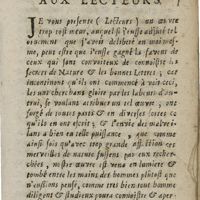 AUX LECTEURS.
JE vous presente (Lecteurs) un œuvre
trop tost meur, auquel si j'eusse adjusté
j'avois deliberé en moy mes-
me, peut estre que j'eusse gagné la faveur de
ceux qui sont convoiteux de connoistre les
secrets de Nature & les bonnes Lettres, car
incontinent qu'ils ont commencé à voir cecy,
les uns cherchans gloire par les labeurs d'au-
truy, se voulans attribuer cet œuvre, ont
forgé de toutes parts & en diverses sortes ce
qu'ils en ont escrit; & l'envie des malveil-
lans a bien en telle puissance, que comme
ainsi soit qu'avec trop grande affection ces
merveilles de nature fussent par eux recher-
chées, nostre œuvre est venu en lumiere &
tombé entre les mains des hommes plustost que
n'eussions pensé, comme tres bien tout homme
diligent & studieux pourra connoistre & aper-